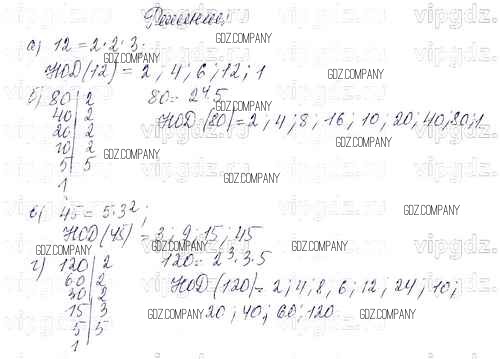 Решение:
а) 12 = 2·2·3.
НОД(12) = 2; 4; 6; 12; 1
б) 80 | 2    80 = 2⁴·5
40 | 2    НОД(80) = 2; 4; 8; 16; 10; 20; 40; 80; 1
20 | 2
10 | 2
5 | 5
1
в) 45 = 5·3²;
НОД(45) = 3; 9; 15; 45
г) 120 | 2    120 = 2³·3·5
60 | 2    НОД(120) = 2; 4; 8; 6; 12; 24; 10;
30 | 2    20; 40; 60; 120
15 | 3
5 | 5
1
GDZ.COMPANY
GDZ.COMPANY
GDZ.COMPANY
GDZ.COMPANY
GDZ.COMPANY
GDZ.COMPANY
GDZ.COMPANY
GDZ.COMPANY
GDZ.COMPANY
GDZ.COMPANY
GDZ.COMPANY
GDZ.COMPANY
GDZ.COMPANY
vipgdz.ru